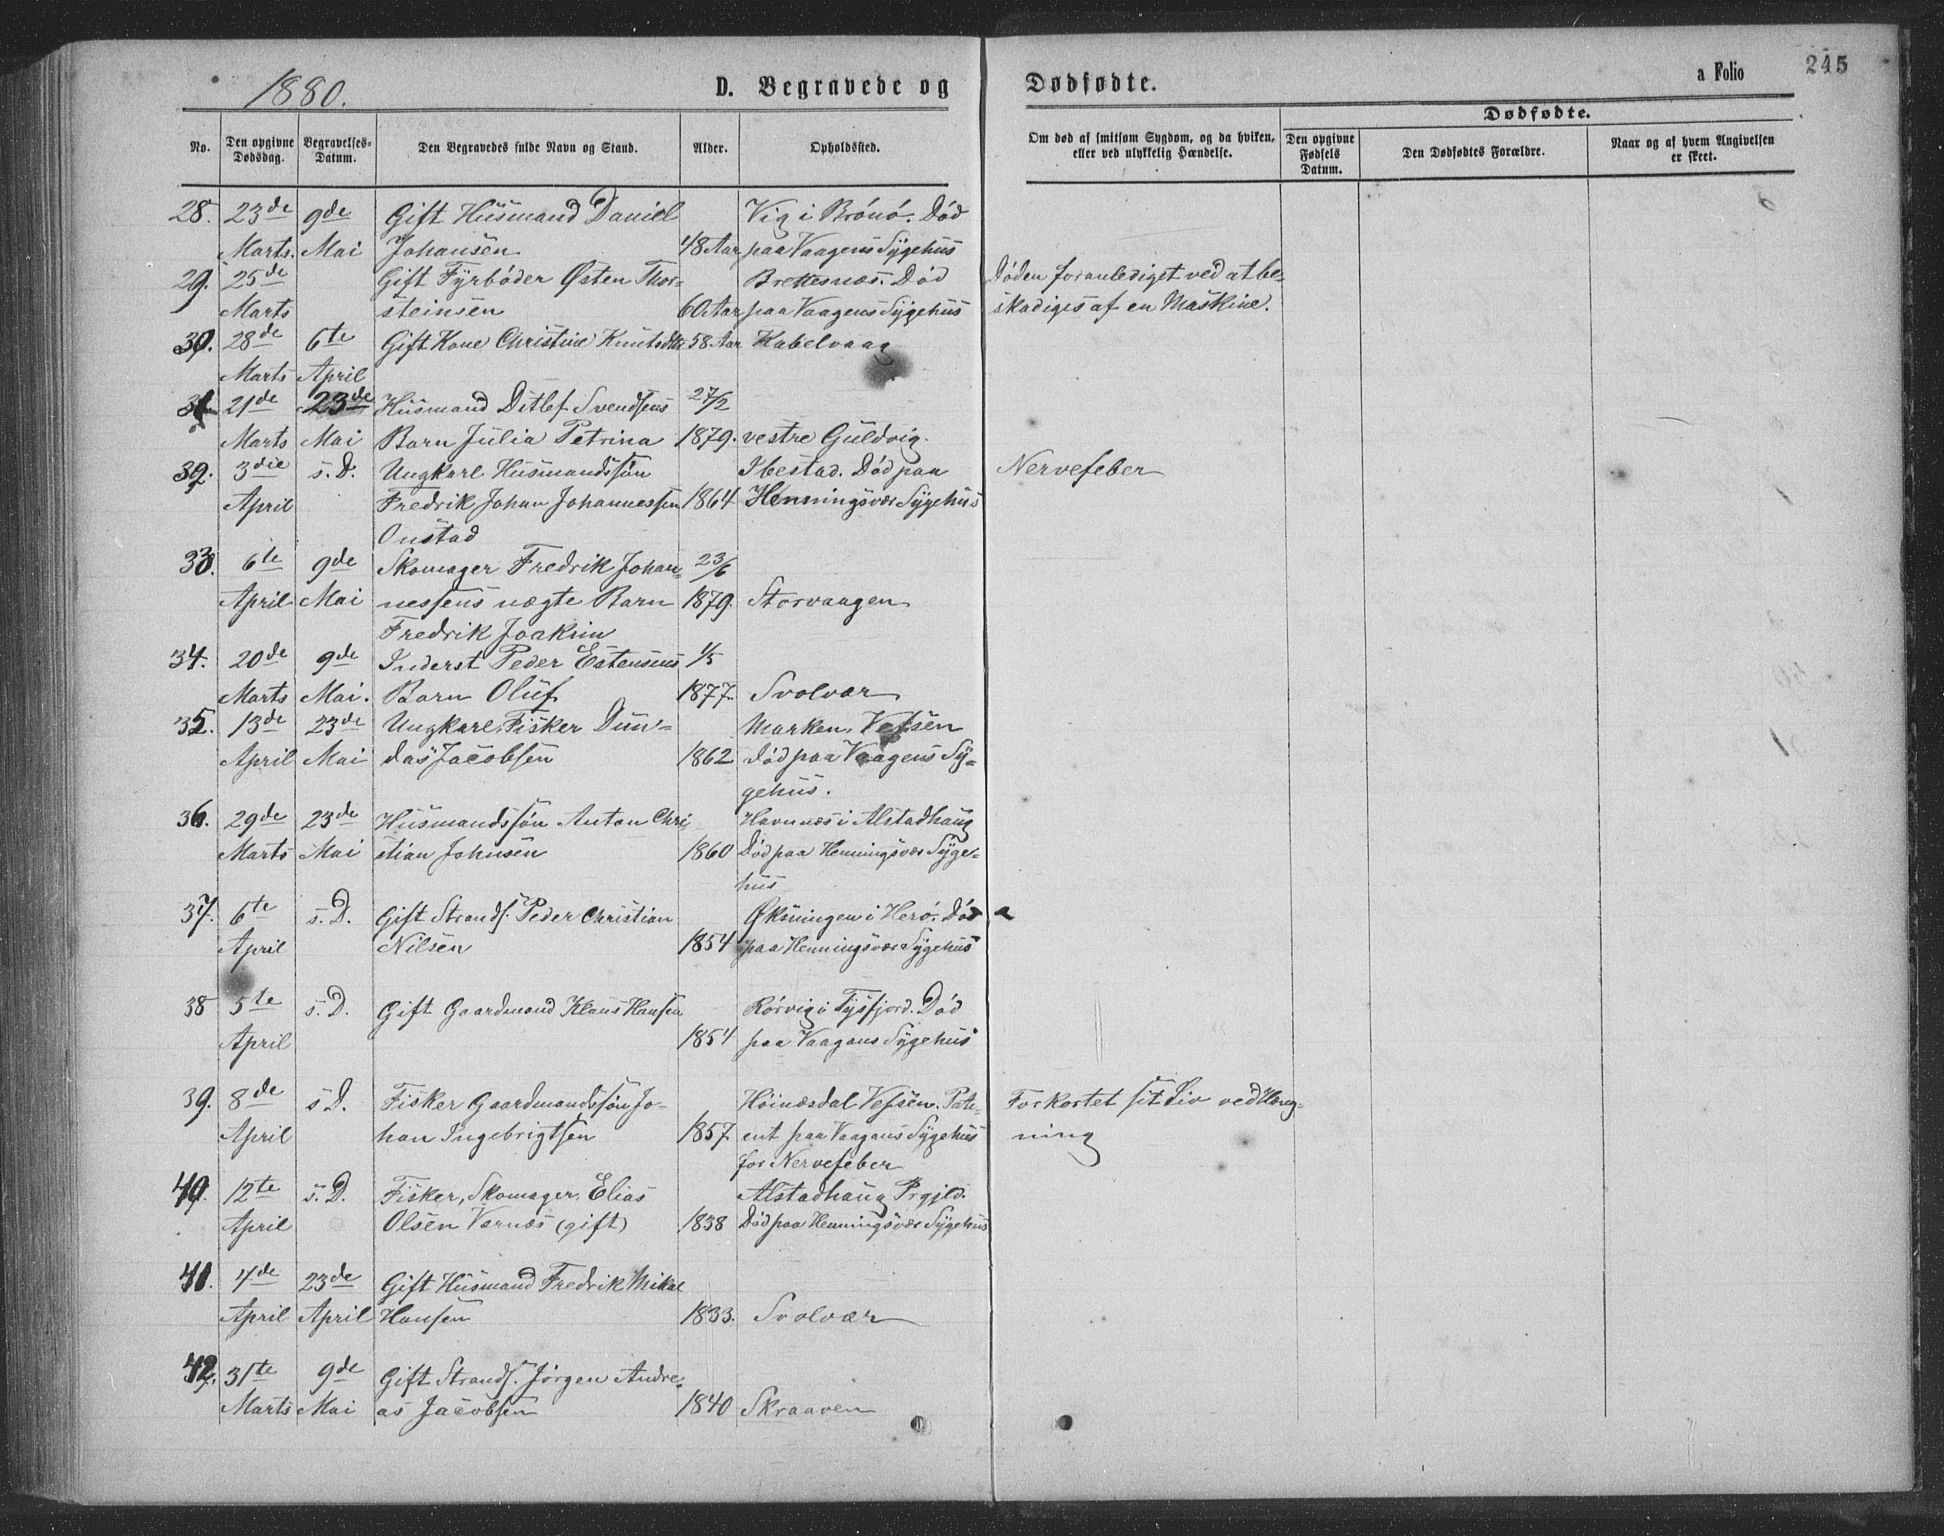 1880.
D. Begravede og
Dødfødte.
a Folio
245
No.
Den opgivne Dødsdag.
Begravelses-Datum.
Den Begravedes fulde Navn og Stand.
Alder.
Opholdssted.
Om død af smitsom Sygdom, og da hvilken, eller ved ulykkelig Hændelse.
Dødfødte.
Den opgivne Fødsels Datum.
Den Dødfødtes Forældre.
Naar og af hvem Angivelsen er skeet.
28. 23de 9de Gift Husmand Daniel Vig i Brønø. Død
Marts. Mai Johansen 48 Aar paa Vaagens Sygehus
29. 25de Gift Fyrbøder Østen Thor- Brettesnæs. Død Døden foranlediget ved at be-
Marts steinsen 60 Aar paa Vaagens Sygehus skadiges af en Maskine.
30. 28de 6te Gift Kone Christine Knutsdtr 58 Aar Kabelvaag
Marts April
31 21de 23de Husmand Ditlef Svendsens 27/2
Marts Mai Barn Julia Petrina 1879. vestre Guldvig.
32. 3die s. D. Ungkarl Husmandssøn Ibestad. Død paa Nervefeber
April Fredrik Johan Johannessen 1864 Henningsvær Sygehus
Onstad
33. 6te 9de Skomager Fredrik Johan- 23/6
April Mai nessens nægte Barn 1879. Storvaagen
Fredrik Joakim
34. 20de 9de Inderst Peder Estensens 1/5
Marts Mai. Barn Oluf 1877. Svolvær
35. 13de 23de Ungkarl, Fisker Dun- Marken, Vefsen
April Mai das Jacobsen 1862 død paa Vaagens Sy-
gehus.
36. 29de 23de Husmandssøn Anton Chri Havnnæs i Alstadhaug
Marts Mai stian Johnsen 1860 Død paa Henningsvær Syge-
hus
37. 6te s. D. Gift Strands. Peder Christian Øksningen i Herø. Død
April Nilsen 1854 paa Henningsvær Sygehus
38 5te s. D. Gift Gaardmand Klaus Hansen Rørvig i Tysfjord. Død
April 1854 paa Vaagans Sygehus
39. 8de s D. Fisker Gaardmandssøn Jo- Høinæsdal Vefsen. Pati- Forkortet sit Liv ved Hæng-
April han Ingebrigtsen 1857 ent paa Vaagans Sygehus ning
for Nervefeber
40. 12te s. D. Fisker, Skomager, Elias Alstadhaug Prgjld.
April Olsen Varnæs (gift) 1838 Død paa Henningsvær Sygehus
41. 7de 23de Gift Husmand Fredrik Mikal
April April Hansen 1833. Svolvær
42. 31te 9de Gift Strands. Jørgen Andre-
Marts Mai as Jacobsen 1840 Skraaven